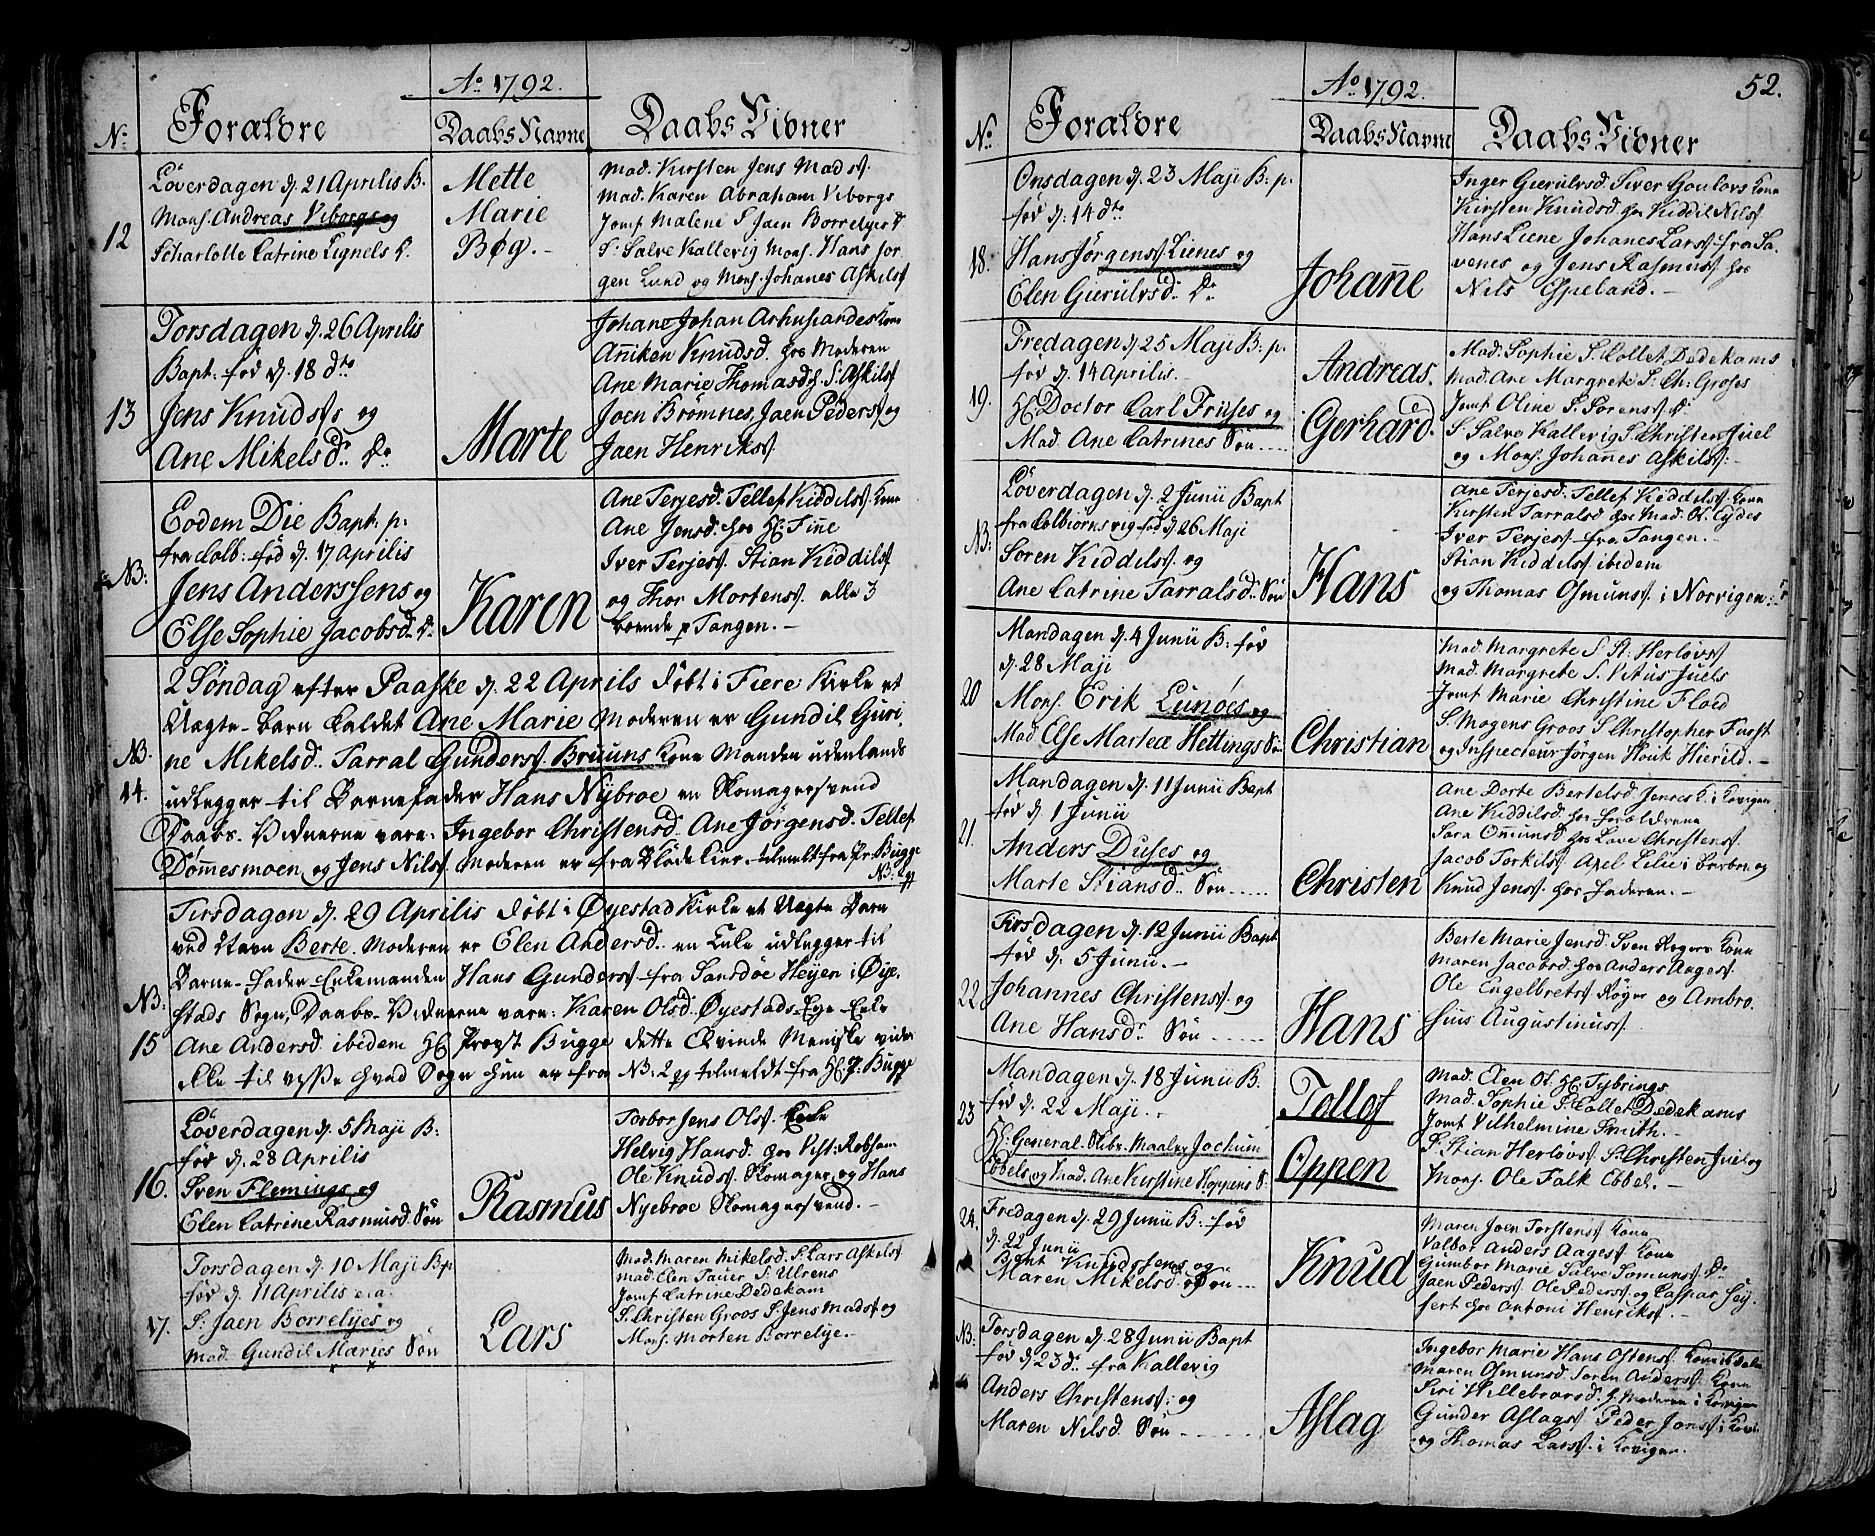 Aº 1792.
Nº Forældre Daabs Navne Daabs Vidner
12
Löverdagen d. 21 Aprilis B.
Mons. Andreas Viborgs og
Scharlotte Catrine Lignels D.
Mette
Marie
Bøg. -
Mad. Kirsten Jens Mads.
Mad. Karen Abraham Viborgs
Jomf Malene S Jaen Borrelyes D
S. Salve Kallevig Mons. Hans Jor
gen Lund og Mons. Johanes Askils
13
Torsdagen d. 26 Aprilis
Bapt: fød d. 18 dto
Jens Knuds og
Ane Mikelsd. Dr
Marte
Johane Johan Arhusiandes Kone
Aniken Knudsd. hos Moderen
Ane Marie Thomasd. S. Askils
Joen Brømnes, Jaen Peders og
Jaen Henriks
NB:
Eodem Die Bapt: p:
fra Colb: fød d. 17 Aprilis
Jens Anderssens og
Else Sophie Jacobsd. Dr
Karen
Ane Terjesd. Tellef Kiddils Kone
Ane Jensd. hos Hr Fine
Iver Terjes. Stian Kiddils
og Thor Mortens. alle 3
boende p Tangen. -
NB. 14.
2 Søndag efter Paaske d. 22 Aprils døbt i Fiere Kirke et
Uægte-barn kaldet Ane Marie Moderen er Gundil Guri,
ne Mikelsd. Tarral Gunders. Bruuns Kone Manden udenlands
udlegger til Barnefader Hans Nybroe en Skomagersvend
Daabs-Vidnerne vare: Ingebor Christensd. Ane Jørgensd. Tellef
Dommesmoen og Jens Nils. Moderen er fra Blødekier tilmeldt fra Pr: Bugge
NB: 15
Tirsdagen d. 29 Aprilis døbt i Øyestad Kirke et Uægte Barn
ved Navn Berte. Moderen er Elen Andersd. en Enke udlegger til
Barne-Fader Enkemanden Hans Gunders fra Sandøe Heyen i Øye,
stads Sogn, Daabs-Vidnerne vare: Karen Olsd. Øyestads-Eye-Enke
Ane Andersd. ibidem Hr Provst Bugge dette Qvinde Meniske vides
ikke til visse hvad Sogn hun er fra NB: tilmeldt fra Hr P: Bugge
16.
Löverdagen d. 5 Maji B:
fød d. 28 Aprilis
Sven Flemings og
Elen Catrine Rasmusd. Søn
Rasmus
Torbor Jens Ols. Enke
Helvig Hansd. hos Vist: Robsam
Ole Knuds. Skomager og Hans
Nyebroe Skomagersvend. -
17.
Torsdagen d. 10 Maji Bp
fød d. 11 Aprilis e.a.
S. Jaen Borrelyes og
Mad. Gundil Maries Søn
Lars
Mad. Maren Mikelsd. S. Lars Askils
Mad. Elen Pauer S. Ulrens
Jomf Catrine Dedekam
S. Christen Groos S. Jens Mads og
Mons. Morten Borrelye. -
Aº 1792. 52.
Nº Forældre Daabs Navne Daabs Vidner
18.
Onsdagen d. 23 Maji B: p.
fød d: 14 dto
Hans Jörgens. Lienes og
Elen Gierulvsd. Dr
Johane
Inger Gierulvsd. Siver Goulovs Kone
Kirsten Knudsd. hos Kiddil Nils
Hans Liene Johanes Lars. fra Sa,
venes og Jens Rasmus hos
Nils Espeland. -
19.
Fredagen d. 25 Maji B: p.
fød d. 14 Aprilis.
Hr Doctor Carl Frises og
Mad. Ane Catrines Søn
Andreas.
Gerhard.
Mad. Sophie S. Collet Dedekams
Mad. Ane Margrete S. Ch: Groses
Jomf Oline S. Sorens. D.
S. Salve Kallevig S. Christen Juel
og Mons. Johanes Askils. -
NB:
Löverdagen d. 2 Junii Bapt
fra Colbiornsvig fød d. 26 Maji
Soren Kiddils. og
Ane Catrine Tarralsd. Søn
Hans
Ane Terjesd. Tellef Kiddils. Kone
Kirsten Tarralsd hos Mad. Ol. Eydes
Iver Terjes. fra Tangen. -
Stian Kiddils ibidem
og Thomas Osmuns. i Norvigen
20
Mandagen d. 4 Junii B: fød
d. 28 Maji
Mons. Erik Lunøes og
Mad Else Martea Hettings Søn
Christian
Mad Margrete S. P. Herlovs
Mad. Margrete S. Vitus Juels
Jomf Marie Christine Floed
S. Mogens Groos S. Christopher Furst
og Inspecteur Jørgen Houk Hierild. -
21.
Mandagen d. 11 Junii Bapt
fød d 1 Junii
Anders Duses og
Marte Stiansd. Søn
Christen
Ane Dorte Bertelsd. Jenses K. i Kovigen
Ane Kiddilsd. hos Forældrene
Sara Omunsd. hos Lave Christens.
Jacob Torkils. Axel Lilie i Barboe og
Knud Jens. hos Faderen. -
22
Tirsdagen d. 12 Junii Bapt
fød d. 5 Junii. -
Johannes Christens. og
Ane Hansd. Søn
Hans
Berte Marie Jensd. Sven Rogers Kone
Maren Jacobsd. hos Anders Aages.
Ole Engelbrets. Røger og Ambro,
sius Augustinus.
23
Mandagen d. 18 Junii B.
fød d. 22 Maji.
Hr General-Skibs-Maaler Jochum
Ebbels og Mad. Ane Kirstine Hoppens S.
Tollof
Oppen
Mad. Elen Ol. Hr Tybrings
Mad. Sophie S. Collet Dedekams
Jomf Vilhelmine Smith. -
S. Stian Herlovs. S. Christen Juel og
Mons. Ole Falk Ebbel. -
24.
Fredagen d. 29 Junii B: fød
d. 22 Junii
Bent Knudstens og
Maren Mikelsd. Søn
Knud
Maren Joen Torstens. Kone
Valbor Anders Aages. Kone
Gumbor Marie Salve Somuns. Dr
Jaen Peders. Ole Peders. og Caspar Sey,
fert hos Antoni Henriks.
NB.
Torsdagen d. 28 Junii Bapt
fød d. 23 d. fra Kallevig
Anders Christens. og
Maren Nilsd. Søn
Aslag
Ingebor Marie Hans Ostens. Kone
Maren Osmunsd. Soren Anders. Kone
Siri Hillebrorsd. h. Moderen i Kovigen
Gunder Aslags. Peder Jons. i Kovi
og Thomas Lars. i Kovigen.